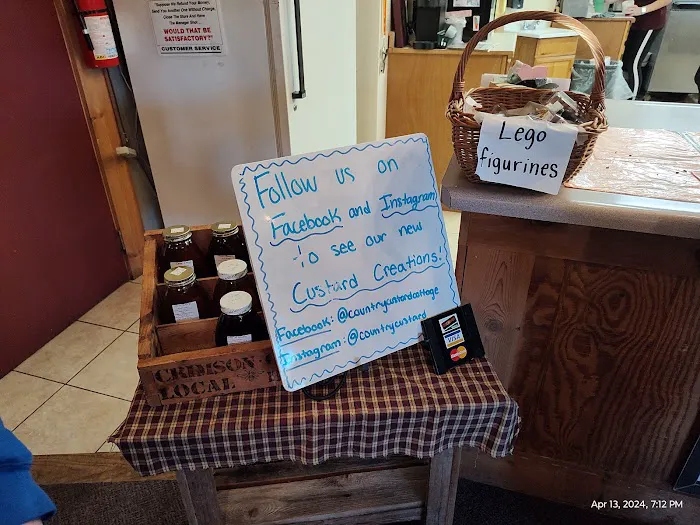 Suppose We Refund Your Money,
Send You Another One Without Charge,
Close The Store And Have
The Manager Shot...
WOULD THAT BE
SATISFACTORY?
CUSTOMER SERVICE
Lego
figurines
Follow us on
Facebook and Instagram
to see our new
Custard Creations!
Facebook: @countrycustardcottage
Instagram: @countrycustard
CRIMSON
LOCAL
VISA
Apr 13, 2024, 7:12 PM